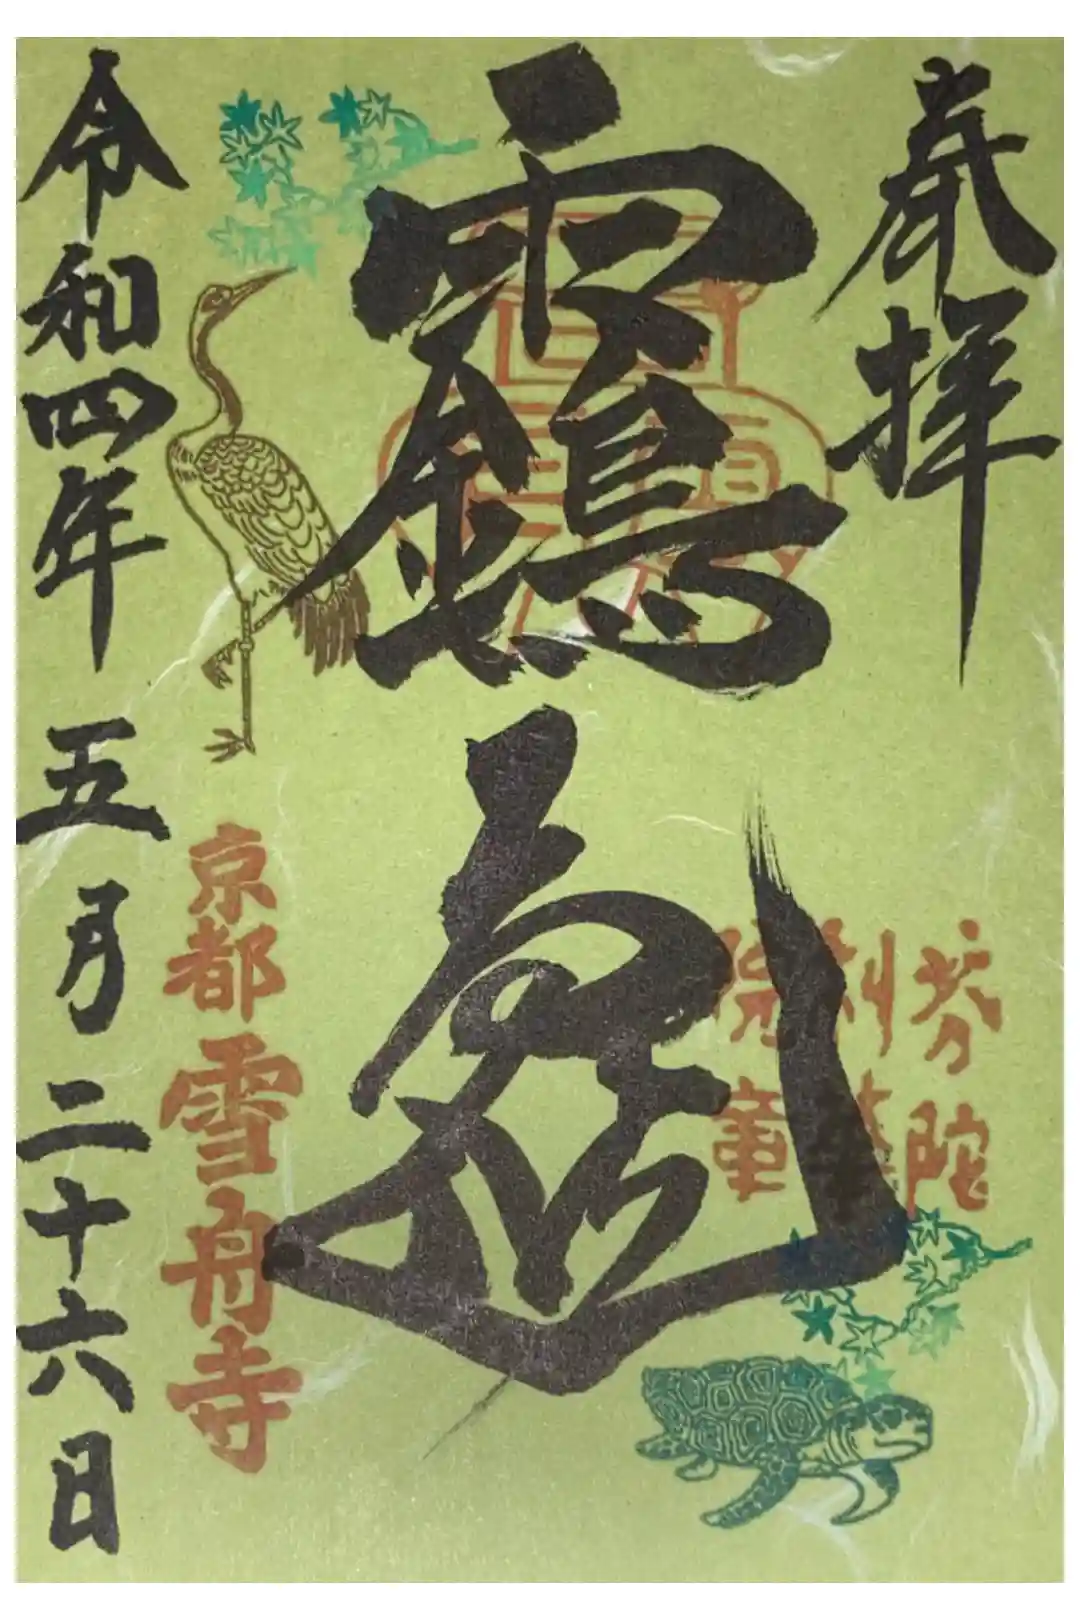 奉拝
鶴亀
芬陀
利華
院章
京都雪舟寺
令和四年五月二十六日